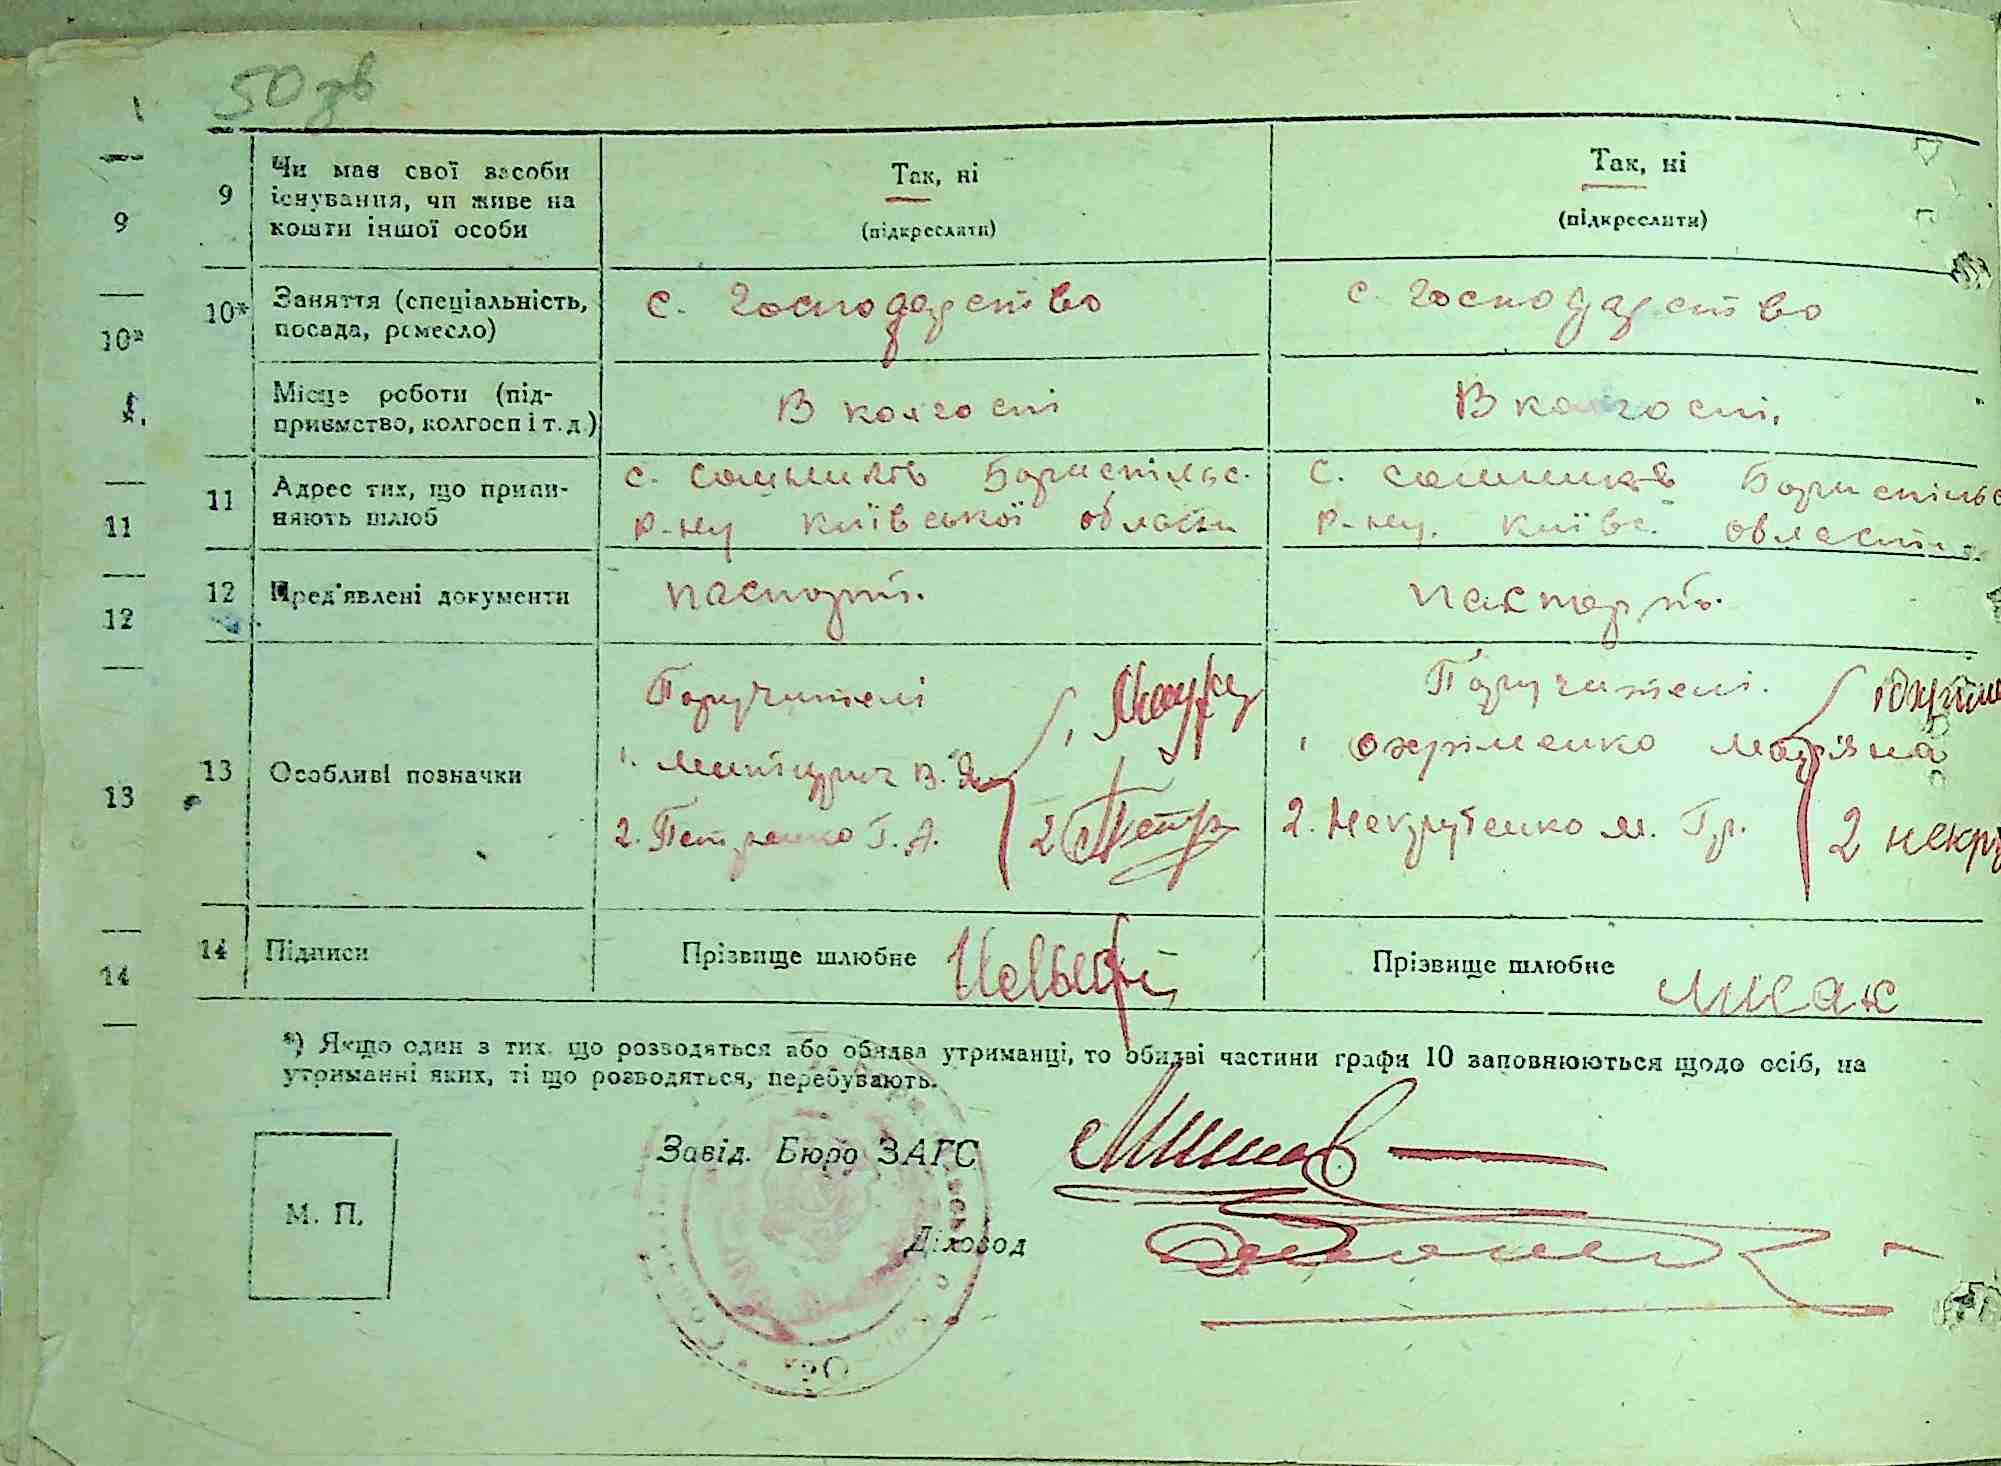 50 зв
9 Чи має свої засоби Так, ні Так, ні
існування, чи живе на
кошти іншої особи (підкреслити) (підкреслити)
9
10* Заняття (спеціальність, с. господарство с. господарство
посада, ремесло)
10*
Місце роботи (під- В колгоспі В колгоспі.
приємство, колгосп і т. д.)
11 Адрес тих, що припи- с. Сошників Бориспільс. с. Сошників Бориспільс
няють шлюб р-ну Київської області р-ну. Київс. області
11
12 Пред'явлені документи паспорт. паспорт.
12
13 Особливі позначки Поручителі Поручителі.
1. В. Я. 1 Охріменко Мар'яна
2. Петренко Г. А. 2 Петр 2. Некрутенко М. Гр. 2 некр
13
14 Підписи Прізвище шлюбне Прізвище шлюбне Лисак
14
*) Якщо один з тих, що розводяться або обидва утриманці, то обидві частини графи 10 заповнюються щодо осіб, на
утриманні яких, ті що розводяться, перебувають.
Завід. Бюро ЗАГС
М. П.
Діловод